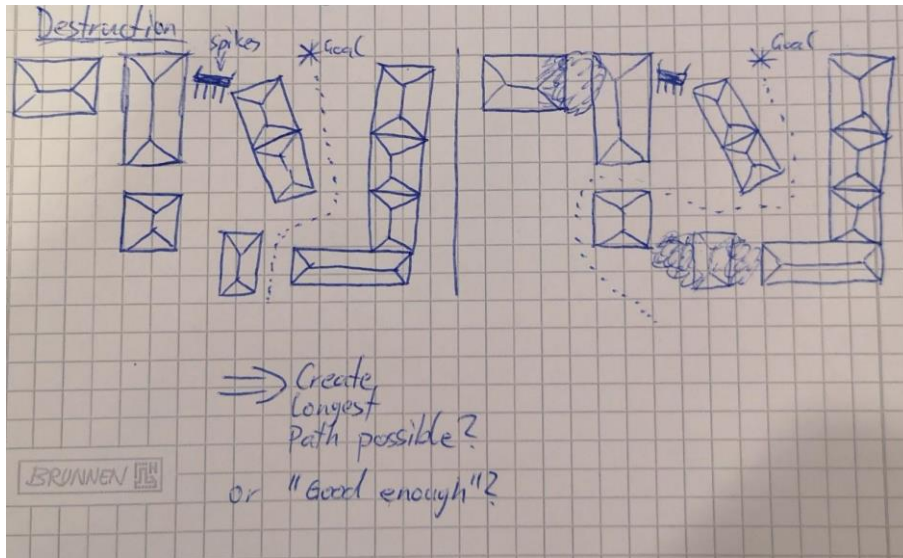 Destruction
Spikes
Goal
Goal
⇒ Create
Longest
Path possible?
or "Good enough"?
BRUNNEN